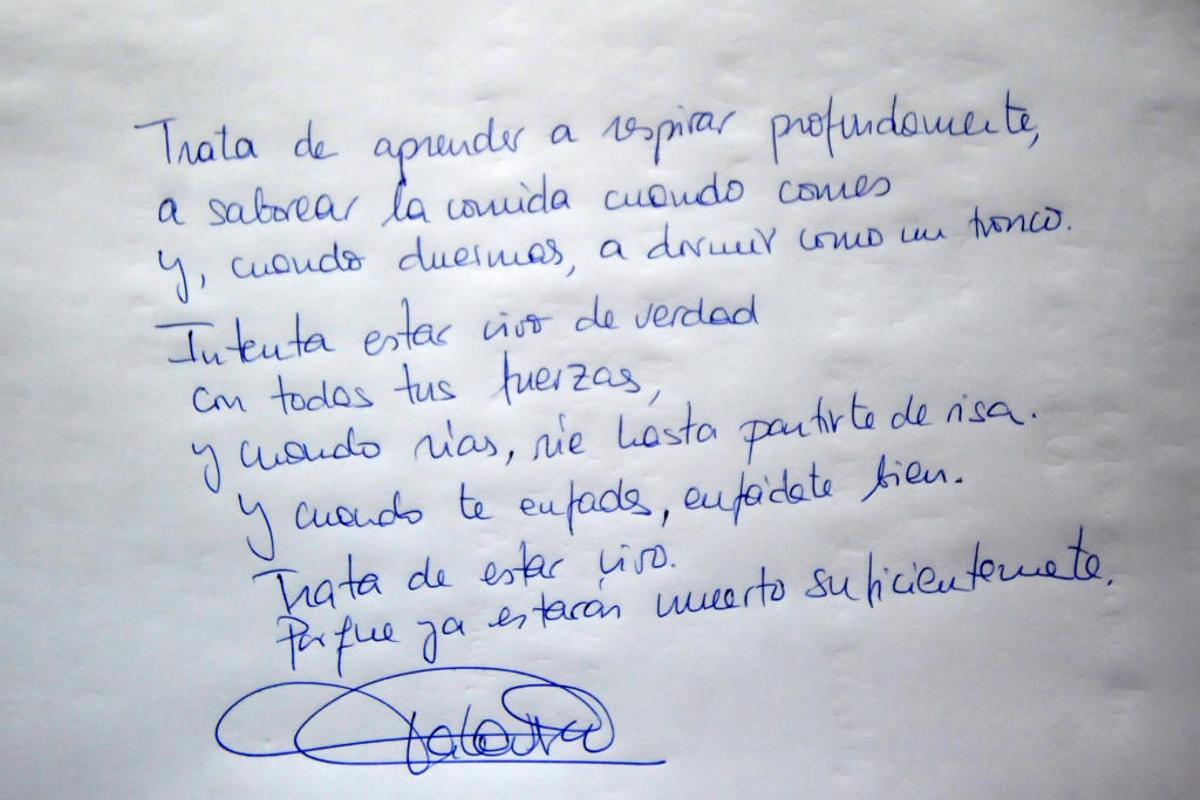 Trata de aprender a respirar profundamente,
a saborear la comida cuando comes
y, cuando duermas, a dormir como un tronco.
Intenta estar vivo de verdad
con todas tus fuerzas,
y cuando rías, ríe hasta partirte de risa.
Y cuando te enfades, enfádate bien.
Trata de estar vivo.
Porque ya estarás muerto suficientemete.